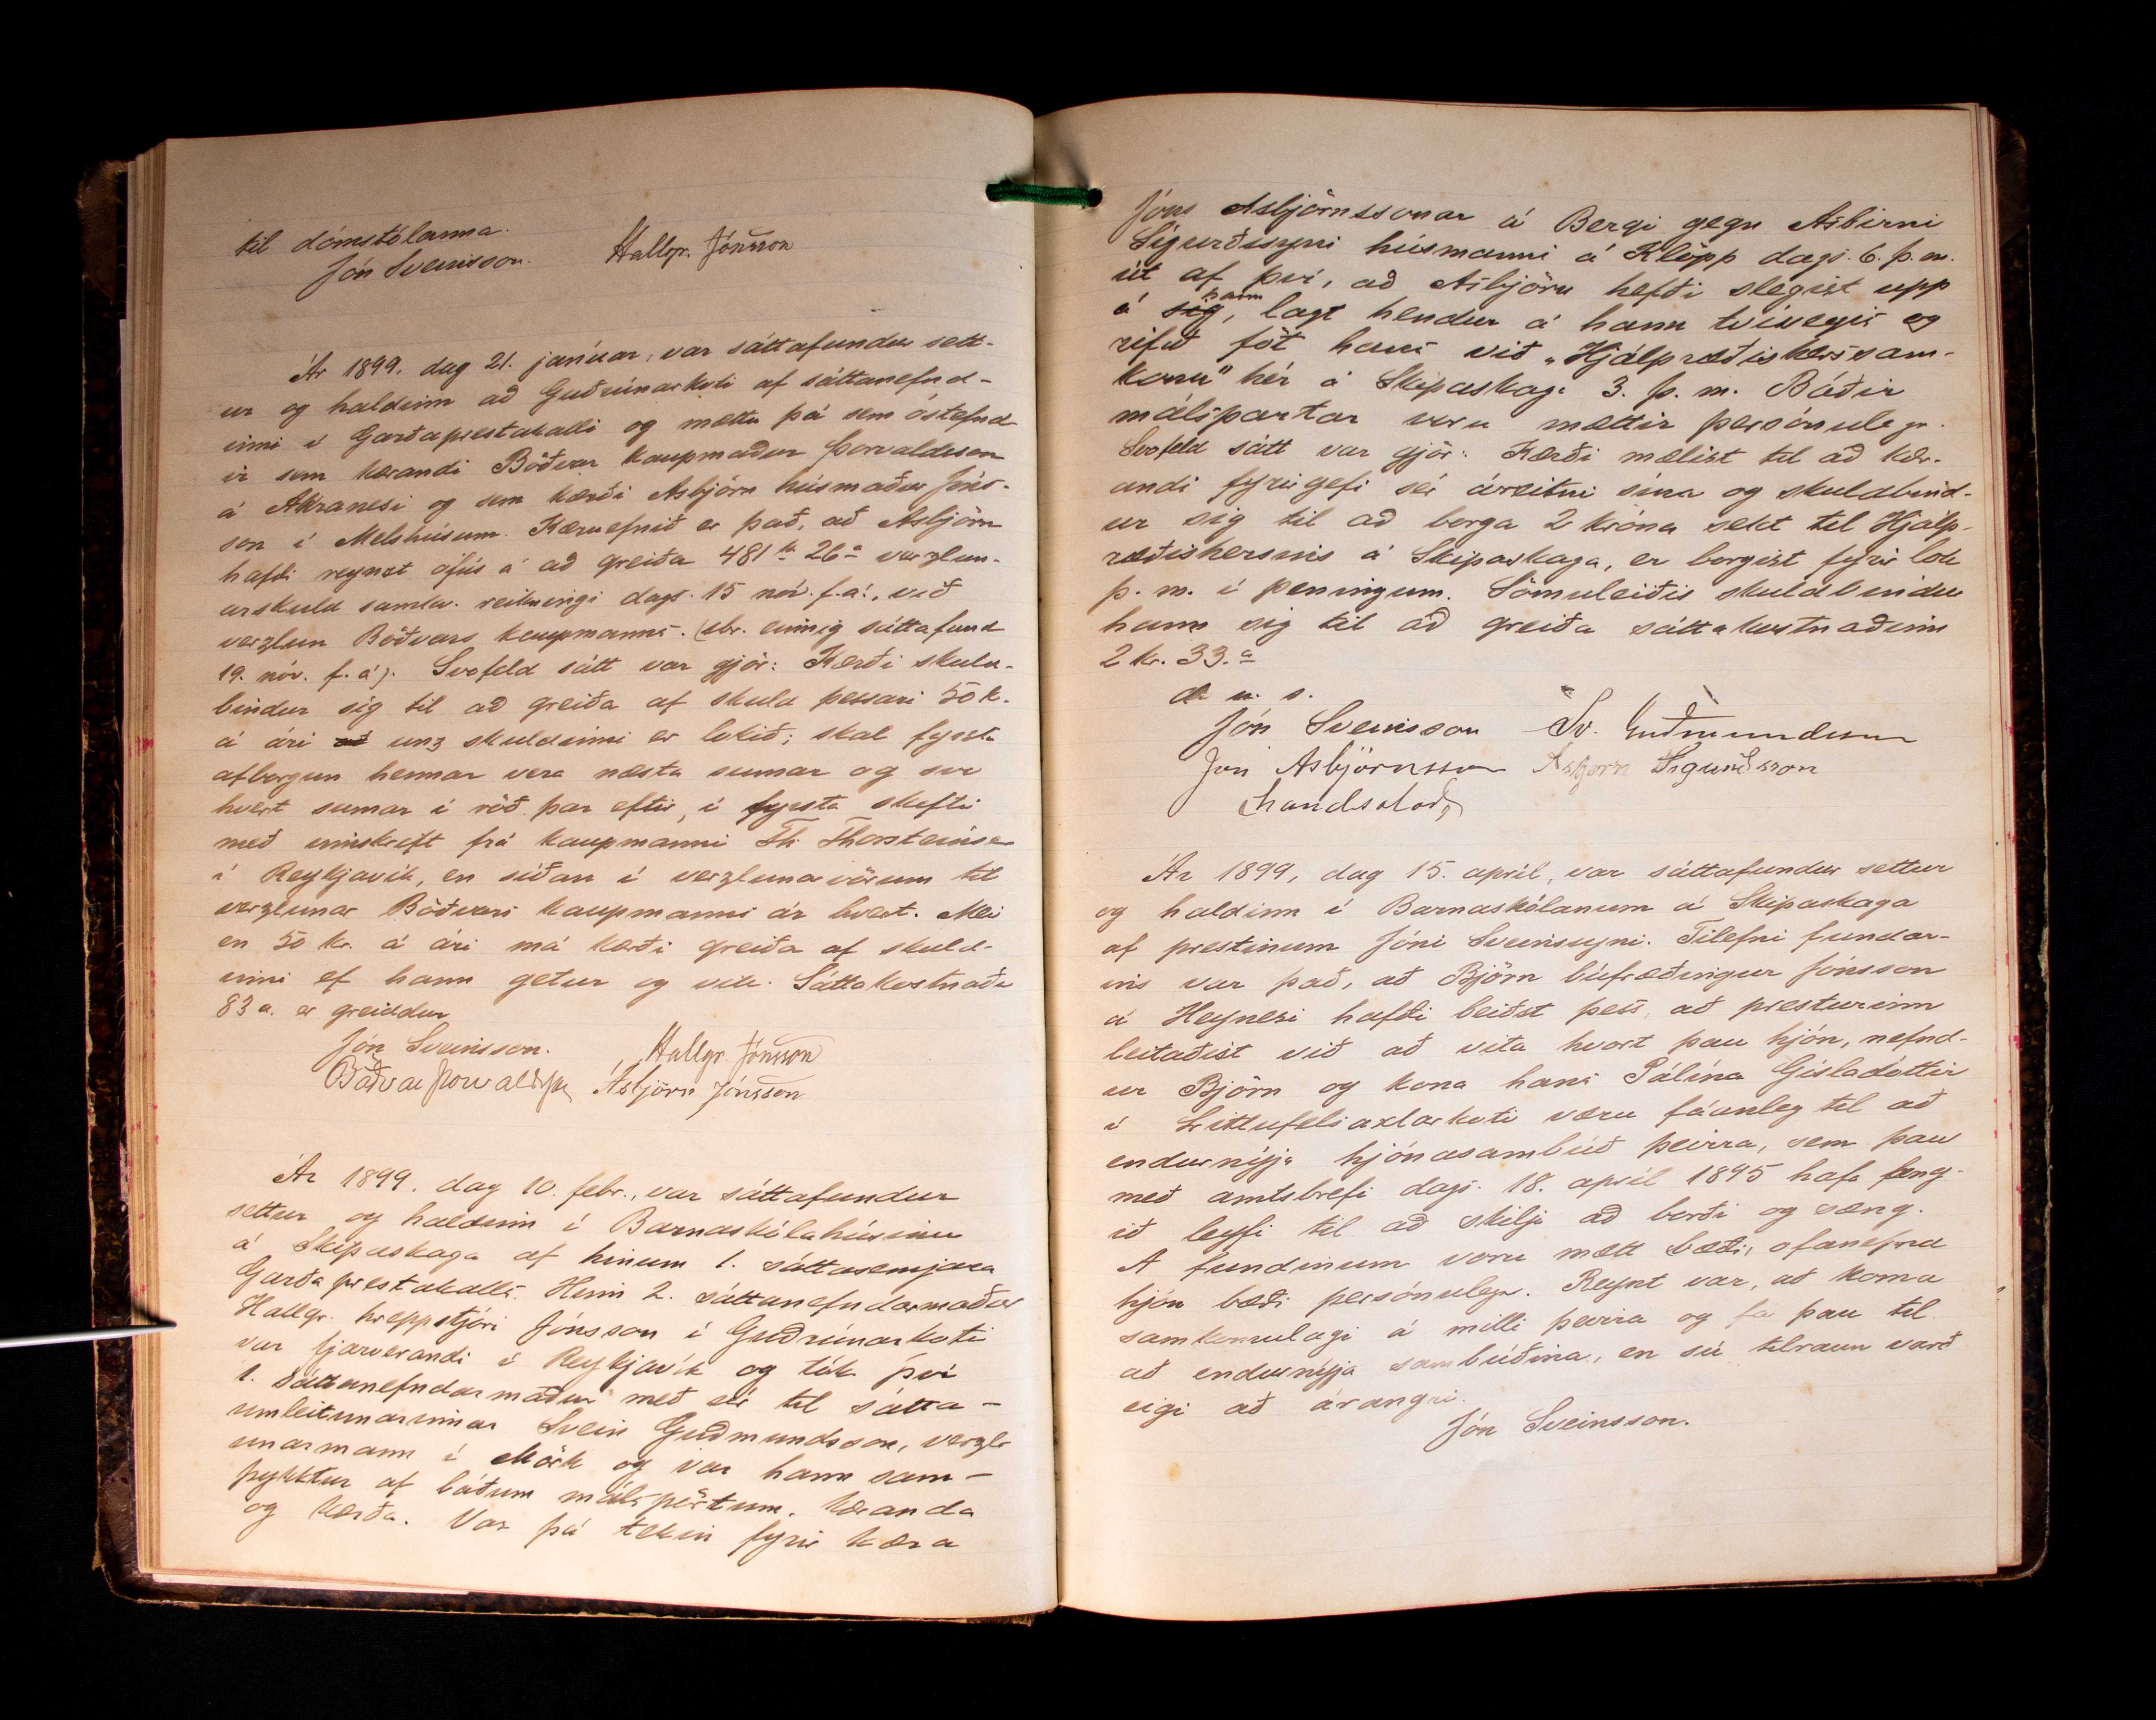 til dómstólanna.
Jón Sveinsson. Hallgr. Jónsson
Ár 1899, dag 21. janúar, var sáttafundur sett-
ur og haldinn að Guðrúnarkoti af sáttanefnd-
inni í Garðaprestakalli og mættu þá sem óstefnd
ir sem kærandi Böðvar kaupmaður Þorvaldsson
á Akranesi og sem kærði Asbjörn húsmaður Jóns-
son í Melshúsum. Kæruefnið er það, að Asbjörn
hafði reynzt ófús á að greiða 481 kr 26 a verzlun-
arskuld samkv. reikningi dags. 15 nóv. f.á., við
verzlun Böðvars kaupmanns. (sbr. einnig sáttafund
19. nóv. f. á). Svofeld sátt var gjör: Kærði skuld-
bindur sig til að greiða af skuld þessari 50 k.
á ári að unz skuldinni er lokið; skal fyrsta
afborgun hennar vera næsta sumar og svo
hvert sumar í röð þar eftir, í fyrsta skifti
með innskrift frá kaupmanni Th. Thorsteinsen
í Reykjavík, en síðan í verzlunarvörum til
verzlunar Böðvars kaupmanns ár hvert. Meir
en 50 kr. á ári má kærði greiða af skuld-
inni ef hann getur og vill. Sáttakostnaður
83 a. er greiddur
Jón Sveinsson. Hallgr. Jónsson
Böðvar Þorvaldsson Ásbjörn Jónsson
Ár 1899, dag 10. febr., var sáttafundur
settur og haldinn í Barnaskólahúsinu
á Skipaskaga af hinum 1. sáttasemjara
Garðaprestakalls. Hinn 2. sáttanefndarmaður
Hallgr. hreppstjóri Jónsson í Guðrúnarkoti
var fjarverandi í Reykjavík og tók því
1. sáttanefndarmaður með sér til sátta-
umleitunarinnar Svein Guðmundsson, verzl-
unarmann í Mörk og var hann sam-
þykktur af báðum málspörtum, kæranda
og kærða. Var þá tekin fyrir kæra
Jóns Asbjörnssonar á Bergi gegn Asbirni
Sigurðssyni húsmanni á Klöpp dags. 6. þ. m.
út af því, að Asbjörn hefði slegist upp
á sig hann, lagt hendur á hann tvívegis og
rifið föt hans við "Hjálpræðishersam-
komu" hér á Skipaskaga 3. þ. m. Báðir
málspartar voru mættir persónulega.
Svofeld sátt var gjör: Kærði mælist til að kær-
andi fyrirgefi sér áreitni sína og skuldbind-
ur sig til að borga 2 króna sekt til Hjálp-
ræðishersins á Skipaskaga, er borgist fyrir lok
þ. m. í peningum. Sömuleiðis skuldbindur
hann sig til að greiða sáttakostnaðinn
2 kr. 33. a
d. u. s.
Jón Sveinsson Sv. Guðmundsson
Jón Asbjörnsson Asbjörn Sigurðsson
handsalað
Ár 1899, dag 15. apríl, var sáttafundur settur
og haldinn í Barnaskólanum á Skipaskaga
af prestinum Jóni Sveinssyni. Tilefni fundar-
ins var það, að Björn búfræðingur Jónsson
á Heynesi hafði beiðst þess, að presturinn
leitaðist við að vita hvort þau hjón, nefnd-
ur Björn og kona hans Pálína Gísladóttir
í Litlufellsaxlarkoti væru fáanleg til að
endurnýja hjónasambúð þeirra, sem þau
með amtsbrefi dags. 18. apríl 1895 hafa feng-
ið leyfi til að skilja að borði og sæng.
Á fundinum voru mætt bæði, ofanefnd
hjón bæði persónulega. Reynt var, að koma
samkomulagi á milli þeirra og fá þau til
að endurnýja sambúðina, en sú tilraun varð
eigi að árangri.
Jón Sveinsson.